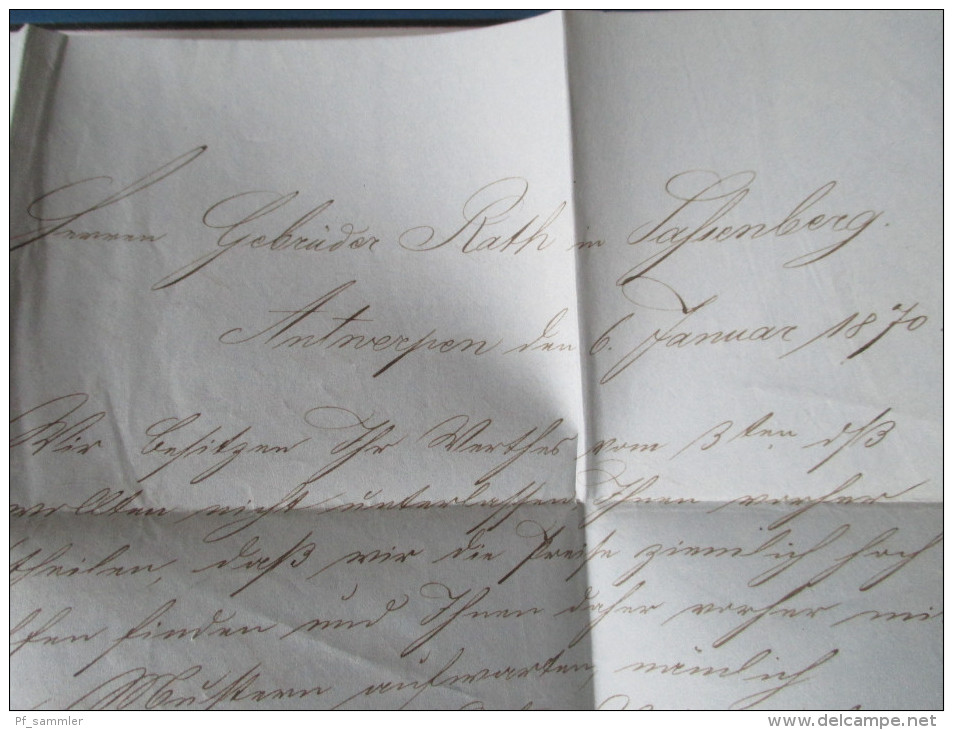 Herren Gebrüder Rath in Sassenberg.
Antwerpen den 6. Januar 1870
Wir besitzen Ihr Werthes vom 3ten dß
wollten nicht unterlassen, Ihnen vorher
theilen, daß wir die Preise ziemlich hoch
finden und Ihnen daher vorher mi
Mustern aufwarten, nämlich
Pf_sammler
www.delcampe.net